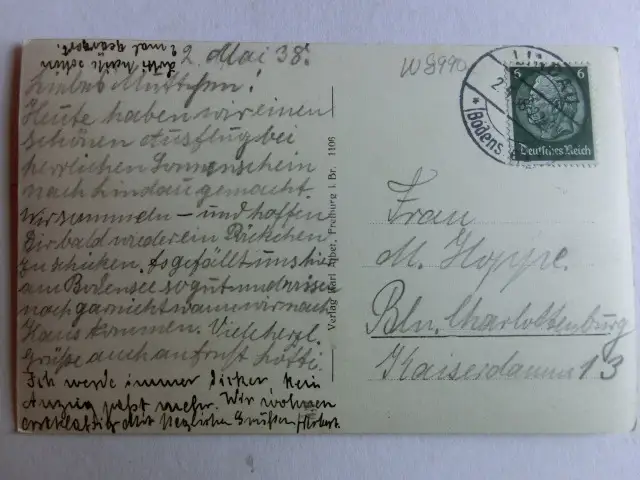 Lotti heute schon
2 mal geärgert.
2. Mai 38.
Liebes Muttchen!
Heute haben wir einen
schönen Ausflug bei
herrlichem Sonnenschein
nach Lindau gemacht.
Wir sammeln – und hoffen
Dir bald wieder ein Päckchen
zu schicken. Es gefällt uns hier
am Bodensee so gut und wissen
noch gar nicht wann wir nach
Haus kommen. Viele herzl.
Grüße auch an Lotti.
Ich werde immer dicker, kein
Anzug paßt mehr. Wir wohnen
erstklassig Mit herzlichen Grüßen Robert.
Verlag Karl Alber, Freiburg i. Br. 1106
W8990
LINDAU
(Bodens
6 6
Deutsches Reich
Frau
M. Hoppe.
Bln. Charlottenburg
Kaiserdamm 13